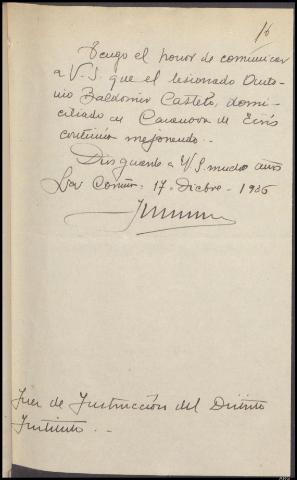 16
Tengo el honor de comunicar
a V.S. que el lesionado Anto-
nio Baldomir Castelo, domi-
ciliado en Casanova de Eirís
continúa mejorando.-
Dios guarde a V.S. muchos años
La Coruña, 17, Dicbre - 1936
Juez de Instrucción del Distrito
Instituto . -